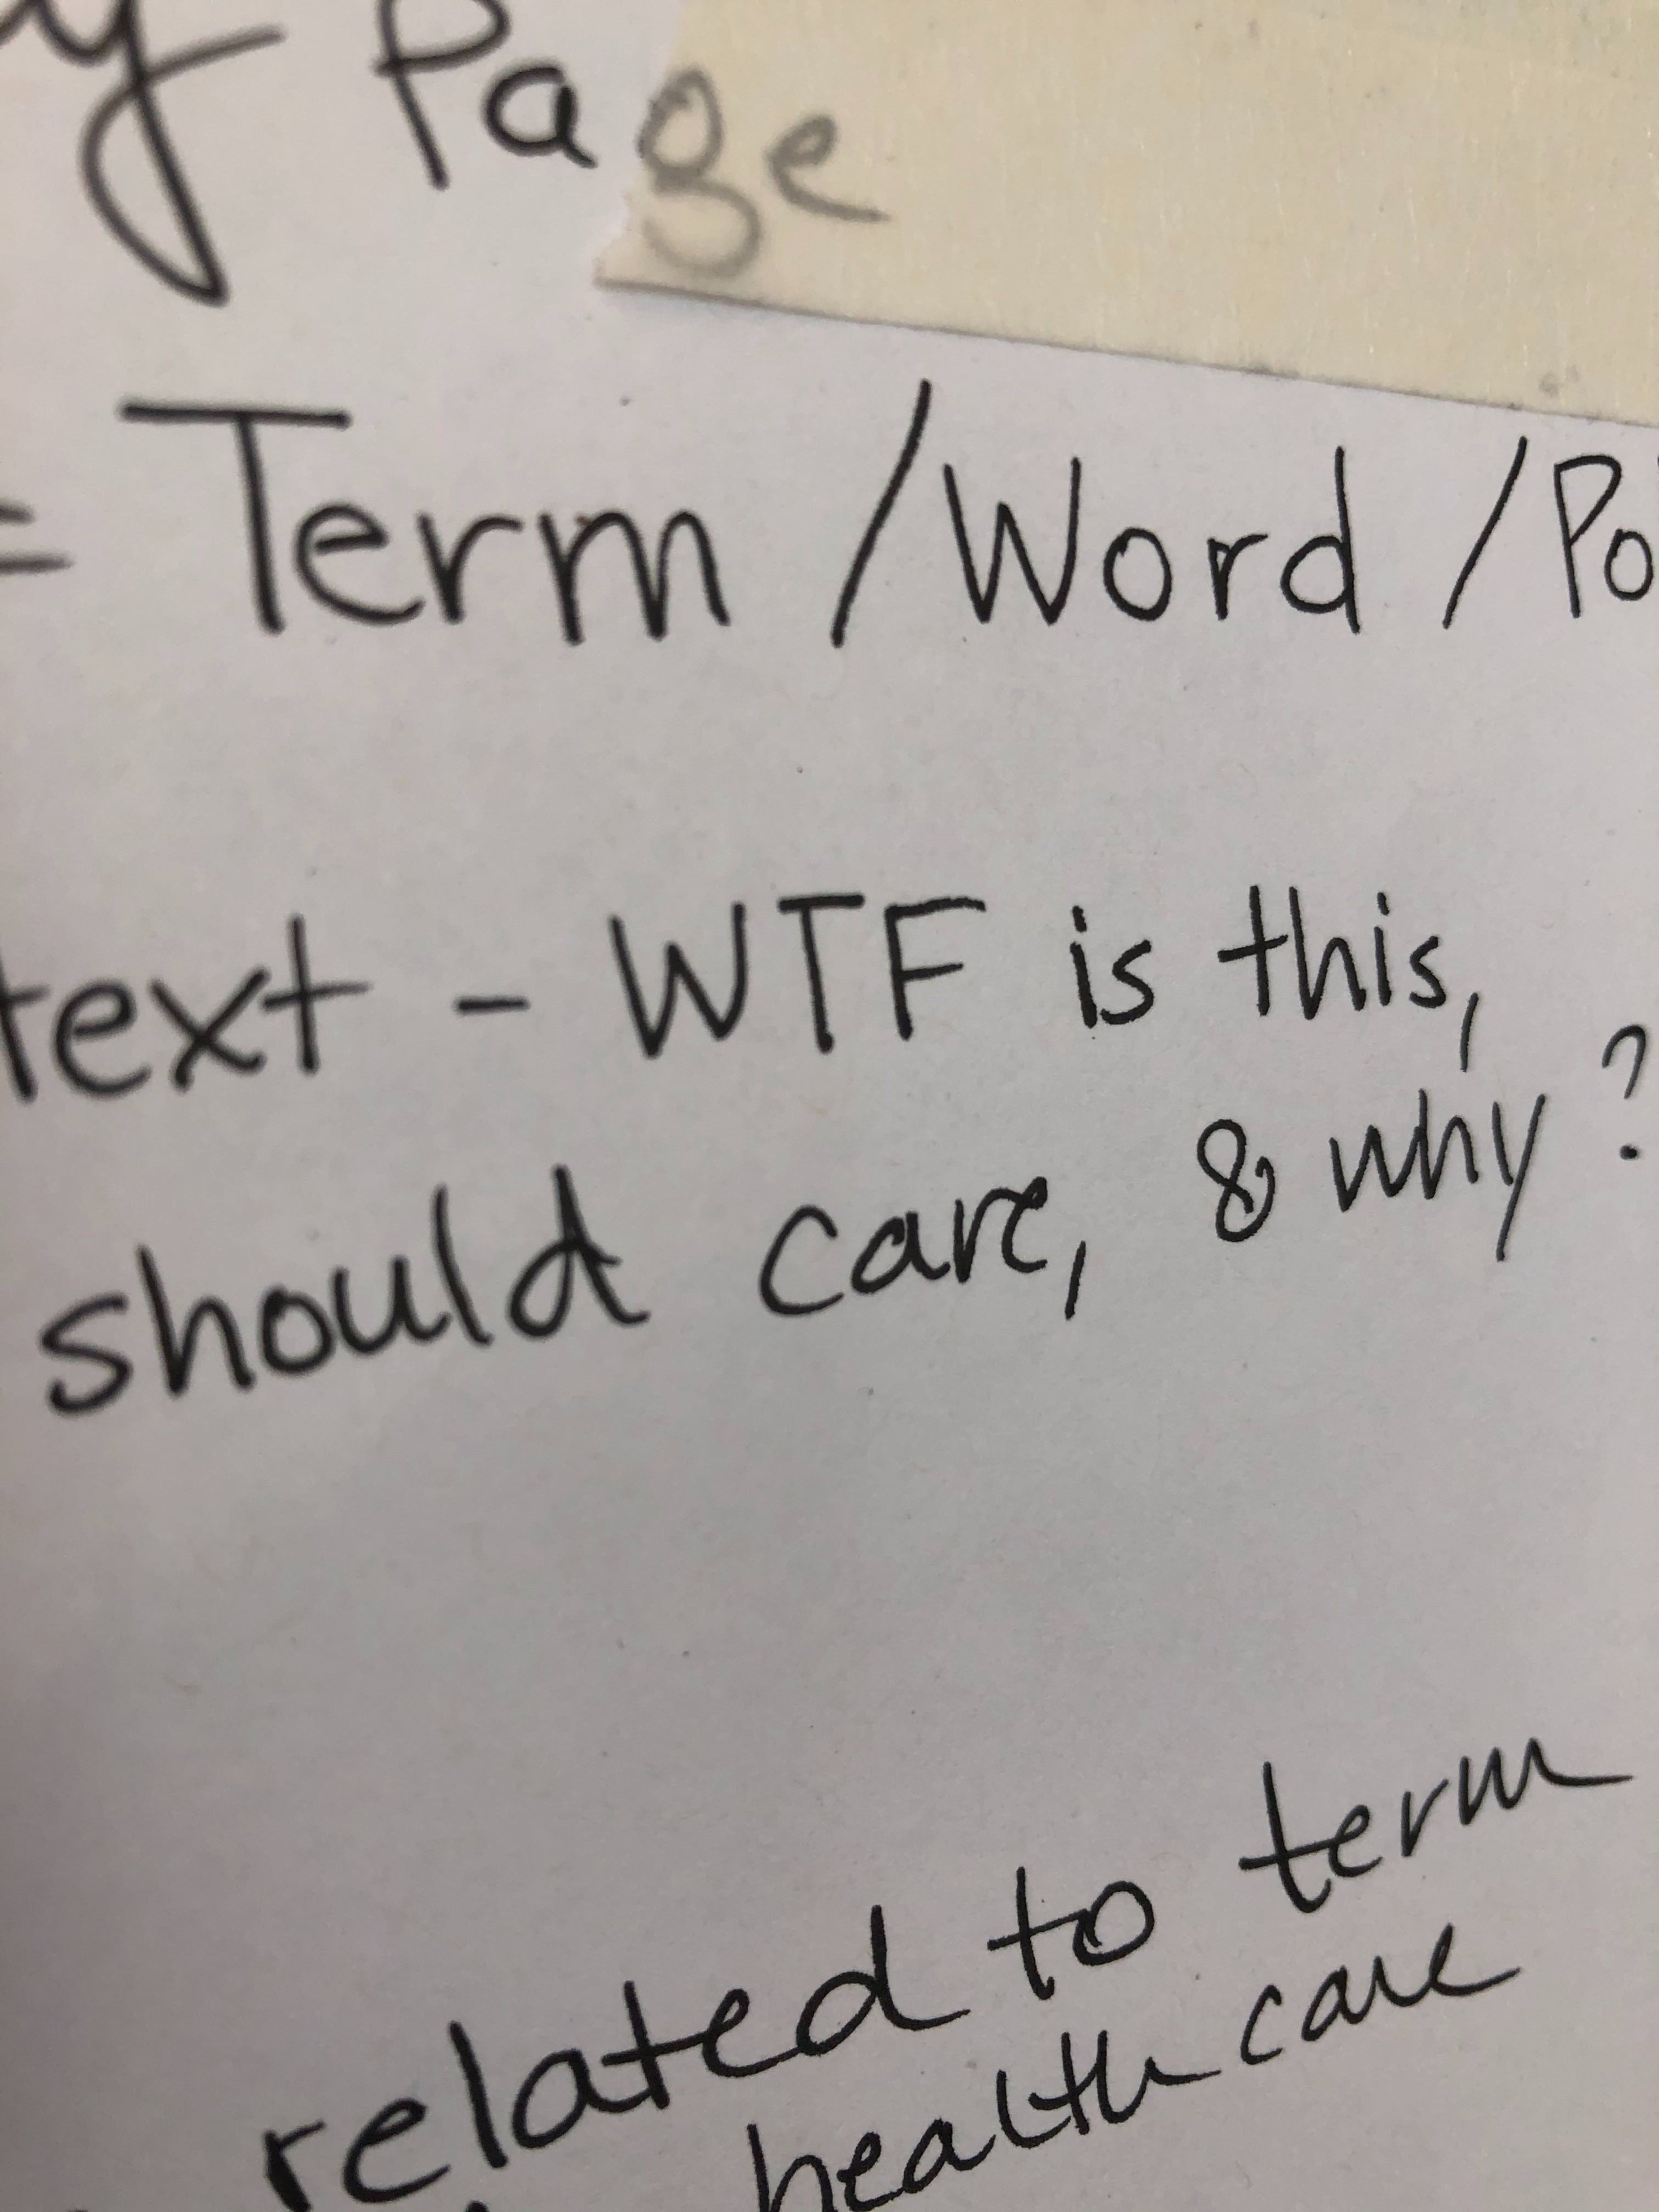 y Page
= Term / Word / Po
text - WTF is this,
should care, & why?
related to term
health care